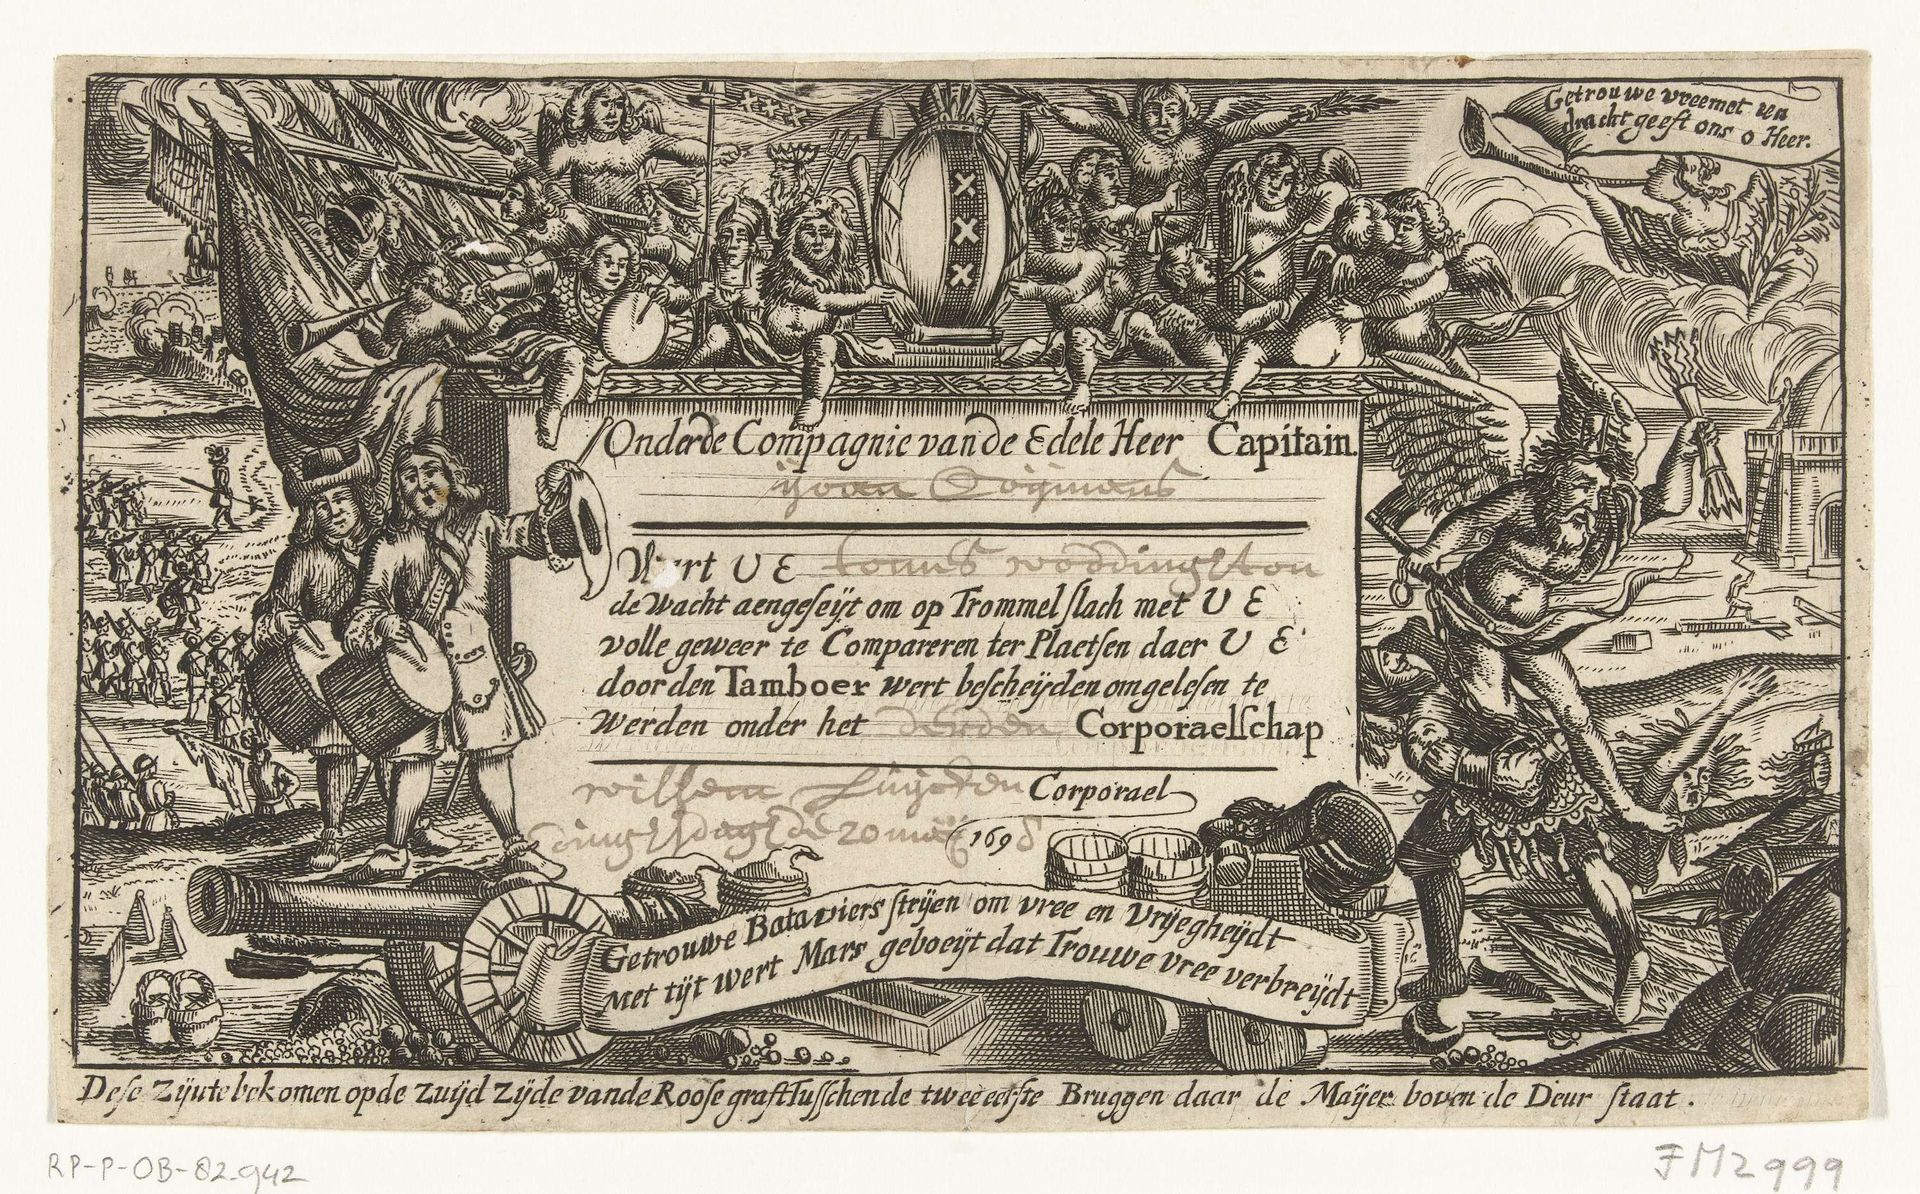 Getrouwe vreemet een
dracht geeft ons o Heer.
Onderde Compagnie van de Edele Heer Capitain.
Wert U E tonus woddinghton
de Wacht aengeseÿt om op Trommelslach met U E
volle geweer te Compareren ter Plaetsen daer U E
door den Tamboer wert bescheÿden omgelesen te
Werden onder het derden Corporaelschap
willem Corporael
dinghsdagh de 20 meÿ 1698
Getrouwe Bataviers strÿen om vree en Vrÿegheÿdt
Met tÿt wert Mars geboeÿt dat Trouwe vree verbreÿdt
Dese Zÿn te bekomen op de Zuÿd Zÿde vande Roose graft Tusschen de twee eerste Bruggen daar de Maÿer boven de Deur staat.
RP-P-OB-82.942
FM2999